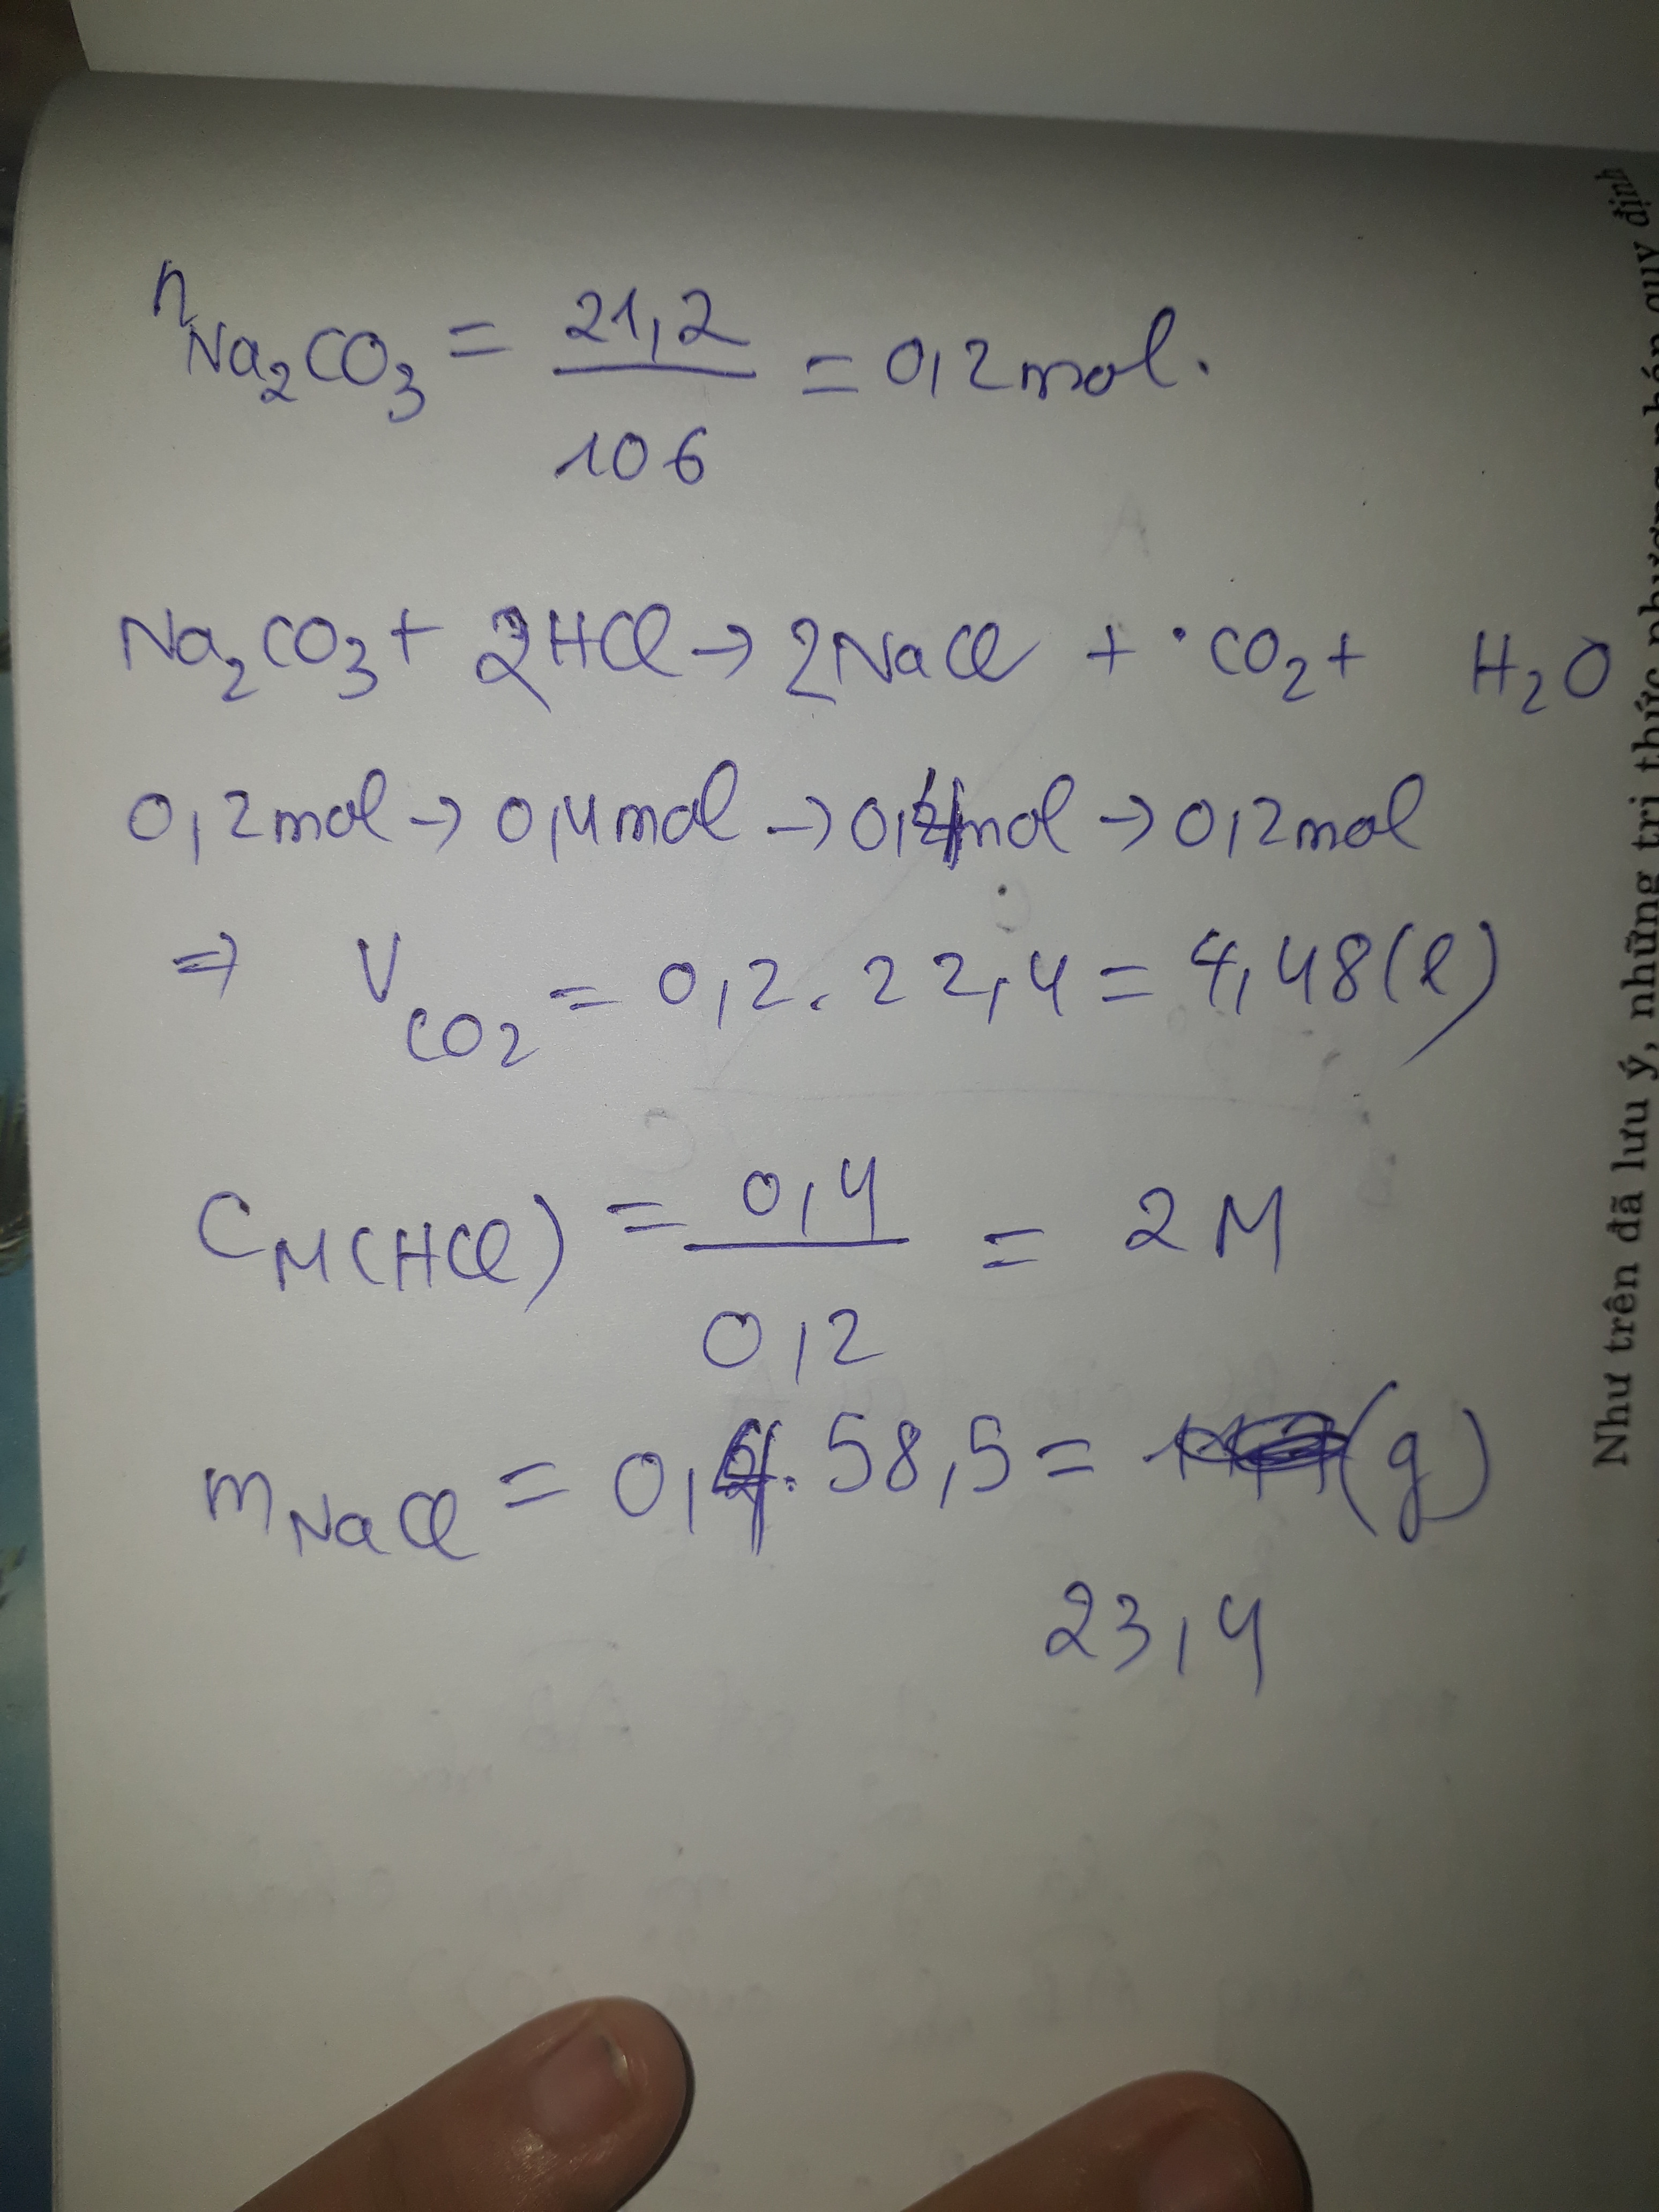 n Na₂CO₃ = 21,2 / 106 = 0,2 mol.
Na₂CO₃ + 2HCl → 2NaCl + CO₂ + H₂O
0,2 mol → 0,4 mol → 0,4 mol → 0,2 mol
⇒ V CO₂ = 0,2 . 22,4 = 4,48 (l)
C M(HCl) = 0,4 / 0,2 = 2 M
m NaCl = 0,4 . 58,5 = (g)
23,4
Như trên đã lưu ý, những tri thức phương pháp quy định